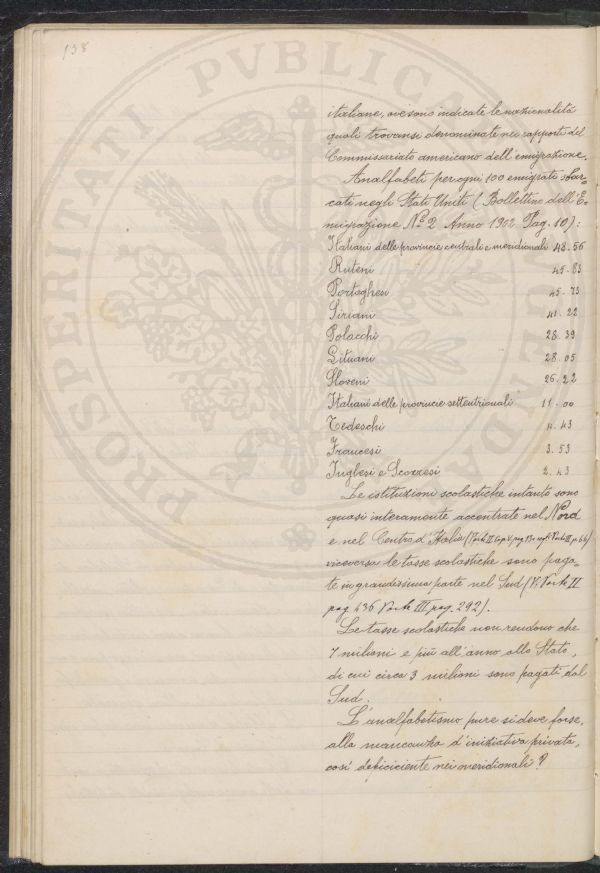 138
PROSPERITATI PUBLICAE AUGENDAE
italiane, ove sono indicate le nazionalità
quali trovansi denominate nei rapporti del
Commissariato americano dell'emigrazione.
Analfabeti per ogni 100 emigrati sbar=
cati negli Stati Uniti (Bollettino dell'E=
migrazione No 2 Anno 1902 Pag. 10):
Italiani delle provincie centrali e meridionali 48.56
Ruteni 45.83
Portoghesi 45.73
Siriani 41.22
Polacchi 28.39
Lituani 28.05
Sloveni 26.22
Italiani delle provincie settentrionali 11.00
Tedeschi 4.43
Francesi 3.53
Inglesi e Scozzesi 2.43
Le istituzioni scolastiche intanto sono
quasi interamente accentrate nel Nord
e nel Centro d'Italia (Parte II Cap. V, pag. 13 e Parte III p. 66)
viceversa le tasse scolastiche sono paga=
te in grandissima parte nel Sud (V. Parte II
pag 436 Parte III pag. 292).
Le tasse scolastiche non rendono che
7 milioni e più all'anno allo Stato,
di cui circa 3 milioni sono pagati dal
Sud.
L'analfabetismo pure si deve forse,
alla mancanza d'iniziativa privata,
così deficiciente nei meridionali?